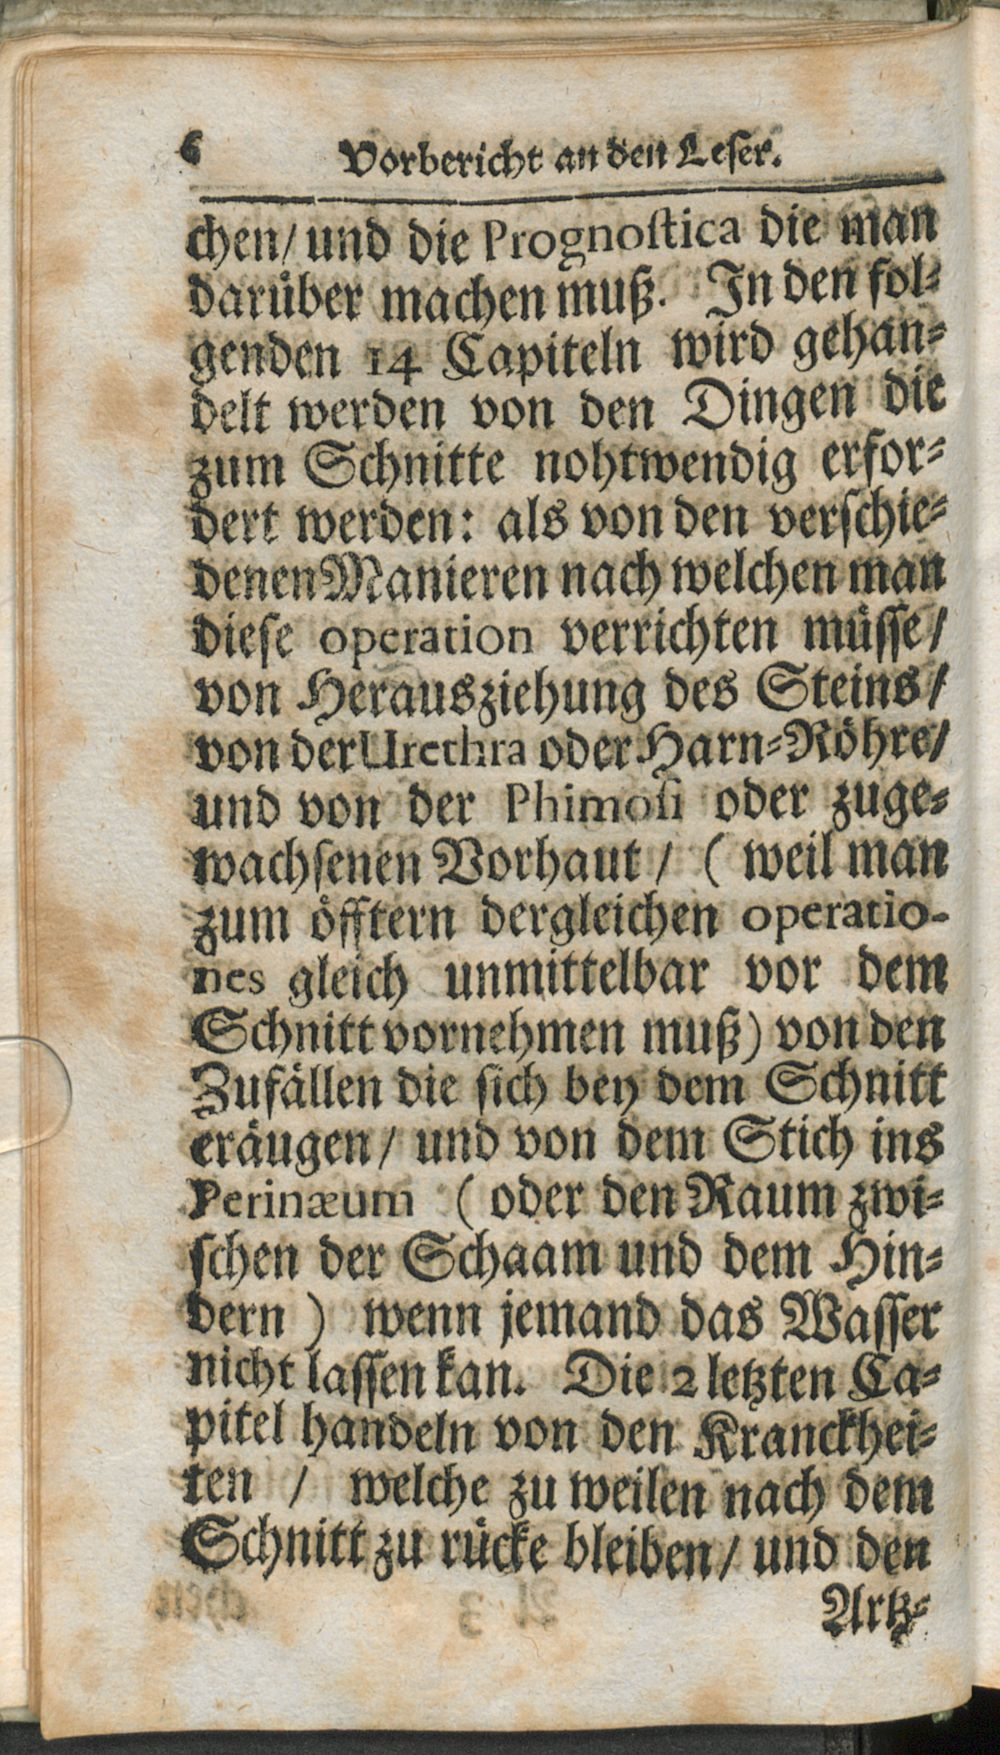 6 Vorbericht an den Leſer.
chen/ und die Prognoſtica die man
darüber machen muß. In den fol⸗
genden 14 Capiteln wird gehan⸗
delt werden von den Dingen die
zum Schnitte nohtwendig erfor⸗
dert werden: als von den verſchie⸗
denen Manieren nach welchen man
dieſe operation verrichten müſſe/
von Herausziehung des Steins/
von der Urethra oder Harn⸗Röhre/
und von der Phimoſi oder zuge⸗
wachſenen Vorhaut / ( weil man
zum öfftern dergleichen operatio-
nes gleich unmittelbar vor dem
Schnitt vornehmen muß) von den
Zufällen die ſich bey dem Schnitt
eräugen / und von dem Stich ins
Perinæum ( oder den Raum zwi⸗
ſchen der Schaam und dem Hin⸗
dern ) wenn jemand das Waſſer
nicht laſſen kan. Die 2 letzten Ca⸗
pitel handeln von den Kranckhei⸗
ten / welche zu weilen nach dem
Schnitt zu rücke bleiben/ und den
Artz⸗